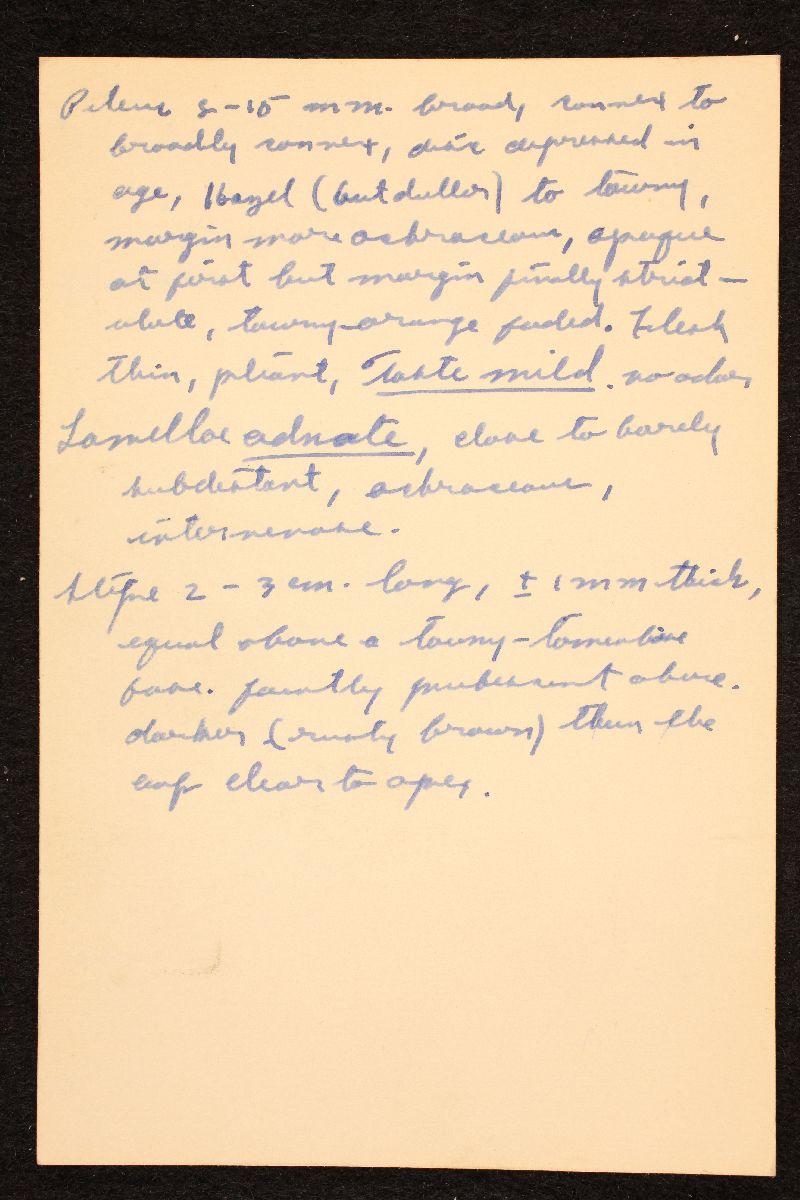 Pileus 5-15 mm. broad, convex to
broadly convex, disc depressed in
age, Hazel (but duller) to tawny,
margin more ochraceous, opaque
at first but margin finally striat-
ulate, tawny-orange faded. Flesh
thin, pliant, Taste mild. no odor
Lamellae adnate, close to barely
subdistant, ochraceous,
intervenose.
Stipe 2-3 cm. long, ± 1 mm thick,
equal above a tawny-tomentose
base. faintly pubescent above.
darker (rusty brown) than the
cap clear to apex.